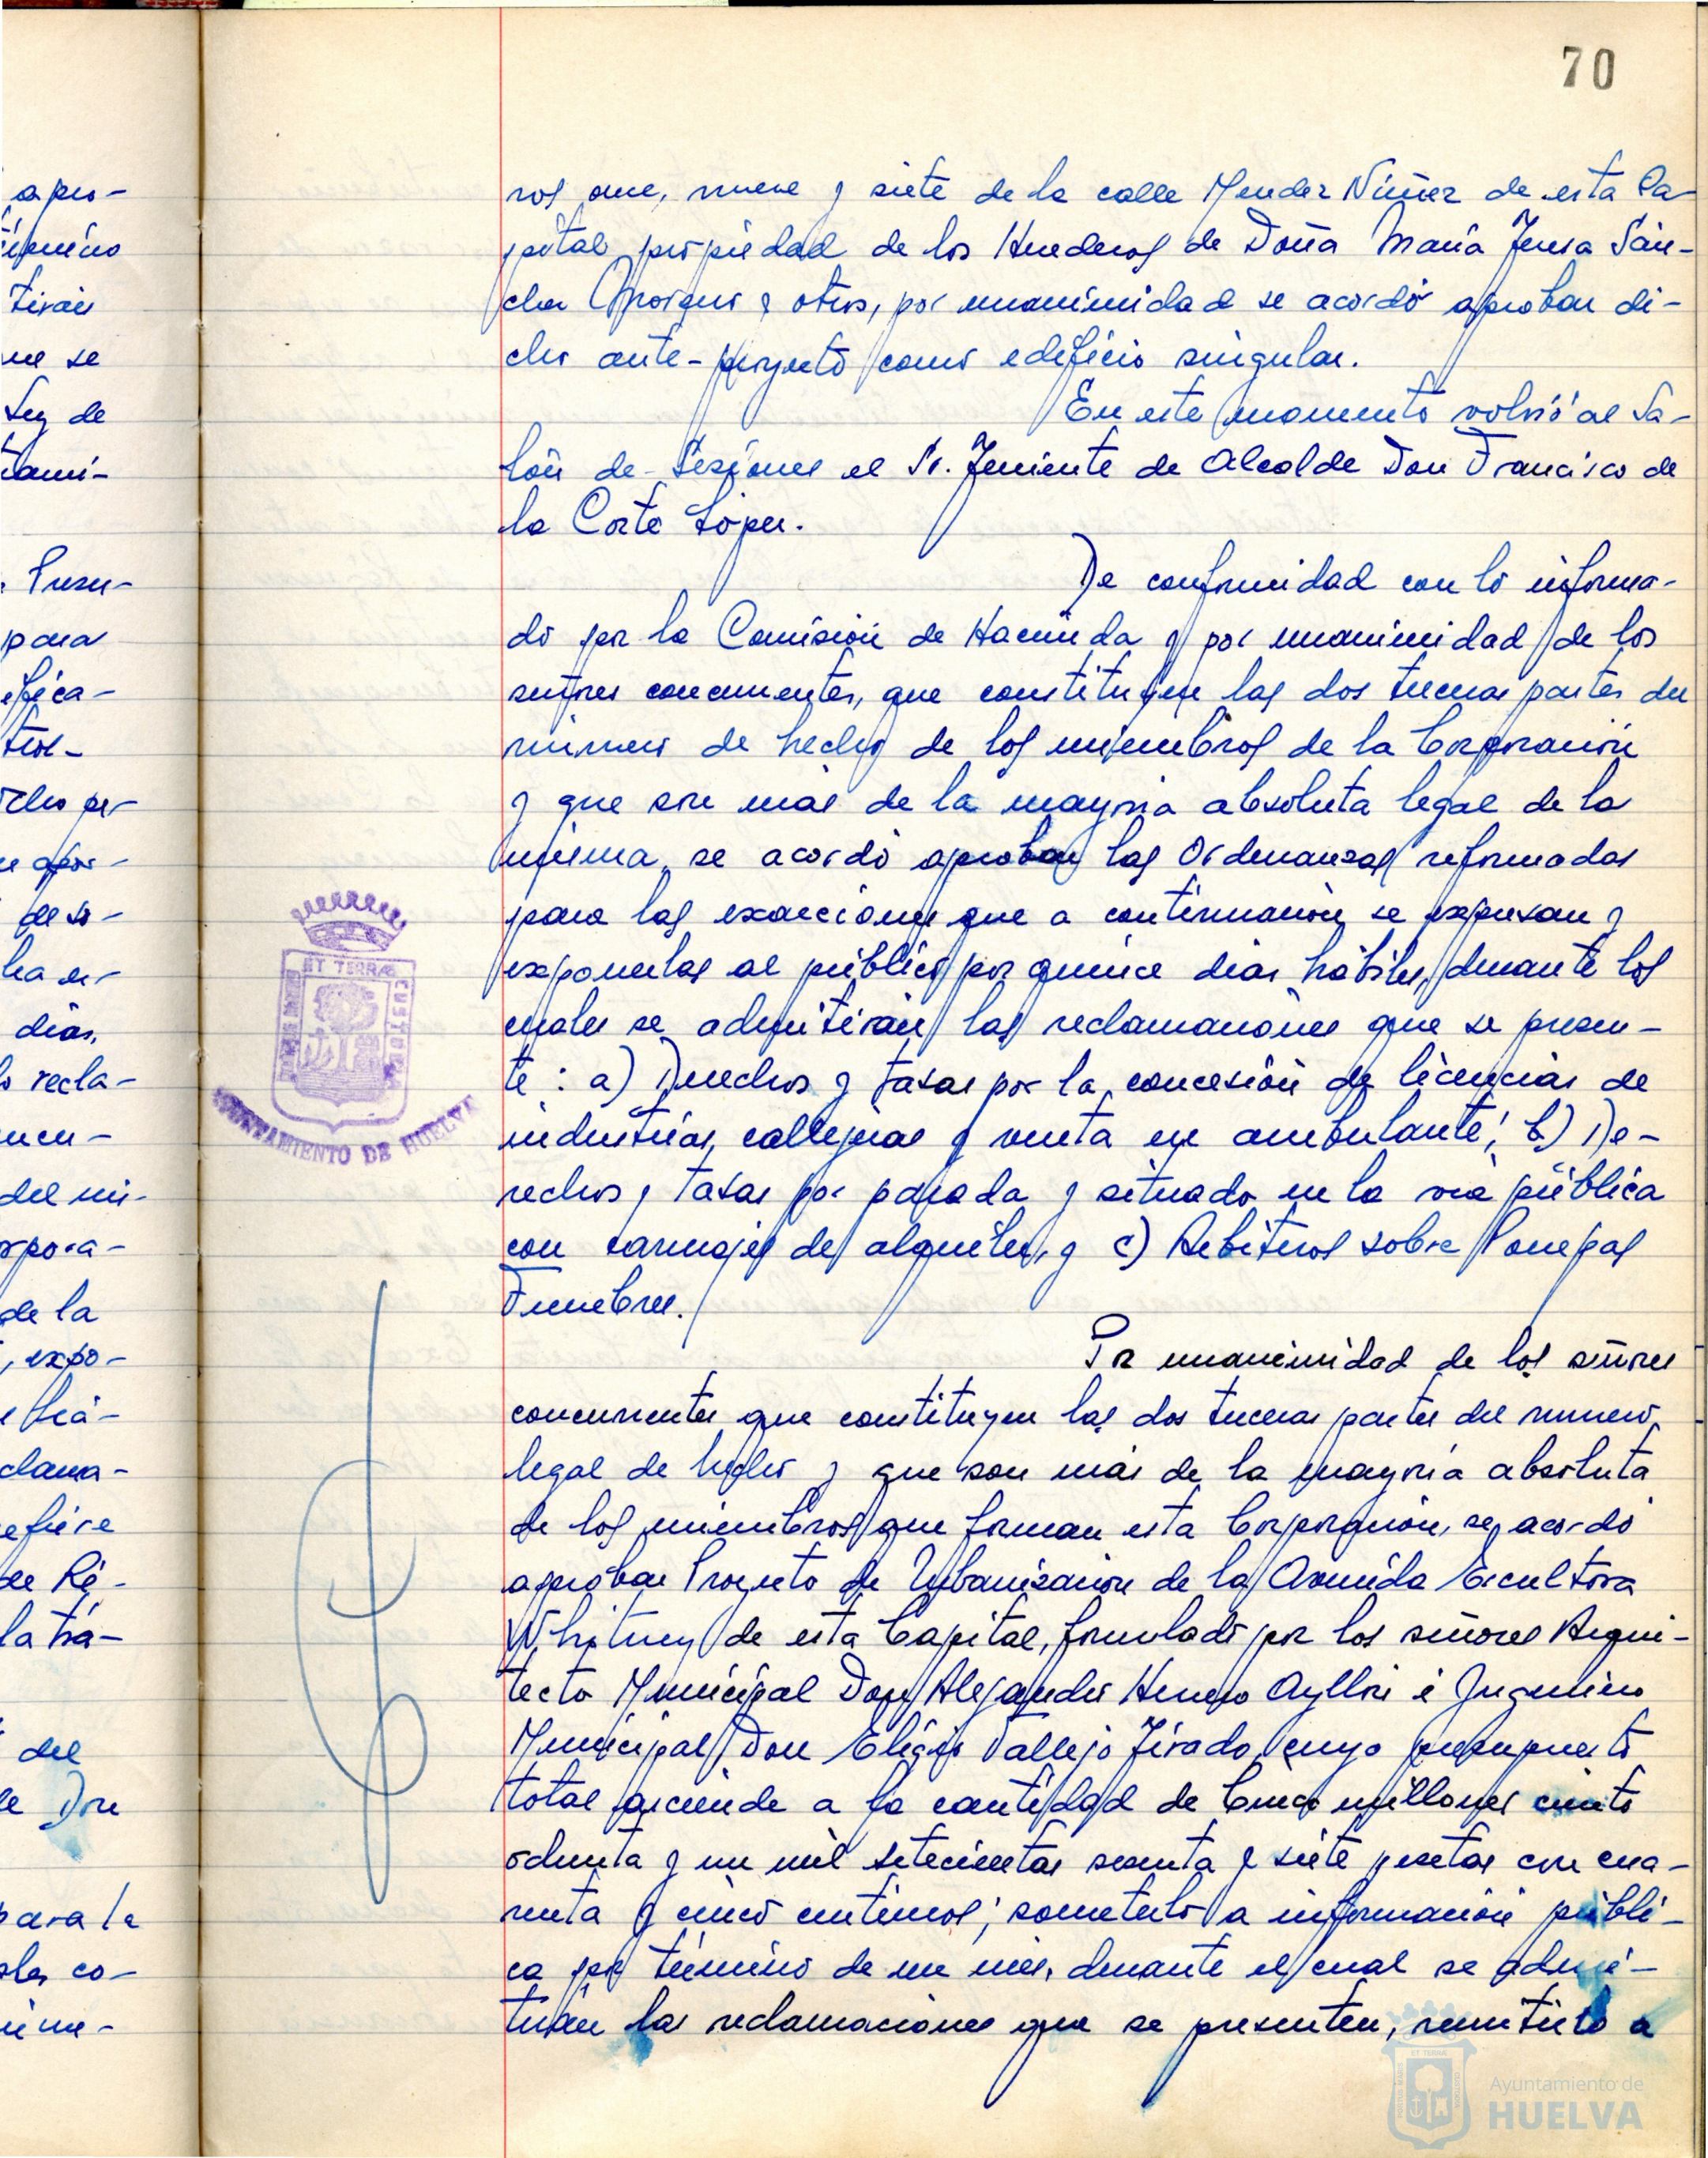 70
ros once, nueve y siete de la calle Mendez Núñez de esta Ca-
pital, propiedad de los Herederos de Doña María Teresa Sán-
chez y otros, por unanimidad se acordó aprobar di-
cho ante-proyecto como edificio singular.
En este momento volvió al Sa-
lón de Sesiones el Sr. Teniente de Alcalde Don Francisco de
la Corte López.
De conformidad con lo informa-
do por la Comisión de Hacienda y por unanimidad de los
señores concurrentes, que constituyen las dos terceras partes del
número de hecho de los miembros de la Corporación
y que son más de la mayoría absoluta legal de la
misma, se acordó aprobar las Ordenanzas reformadas
para las exacciones que a continuación se expresan y
exponerlas al público por quince días hábiles, durante los
cuales se admitirán las reclamaciones que se presen-
te: a) Derechos y tasas por la concesión de licencias de
industrias, callejeras y venta en ambulante; b) De-
rechos y tasas por parada y situado en la vía pública
con carruajes de alquiler, y c) Arbitrios sobre Pompas
Funebres.
Por unanimidad de los señores
concurrentes que constituyen las dos terceras partes del numero
legal de hecho y que son más de la mayoría absoluta
de los miembros que forman esta Corporación, se acordó
aprobar Proyecto de Urbanización de la Avenida Escultora
Whitney de esta Capital, formulado por los señores Arqui-
tecto Municipal Don Alejandro Herrero Ayllón é Ingeniero
Municipal Don Eligio Vallejo Tirado, cuyo presupuesto
total asciende a la cantidad de Cinco millones ciento
ochenta y un mil setecientas sesenta y siete pesetas con cua-
renta y cinco centimos; someterlo a información públi-
ca por término de un mes, durante el cual se admi-
tirán las reclamaciones que se presenten, remitirlo a
ET TERRAE CUSTODIA
AYUNTAMIENTO DE HUELVA
apro-
Tirán
ue se
Ley de
Presu-
para
ifica-
de so-
ha er-
dias,
recla-
del nú-
orpora-
de la
, expo-
clama-
efiere
de Ré-
la trá-
del
Don
para la
Ayuntamiento de
HUELVA